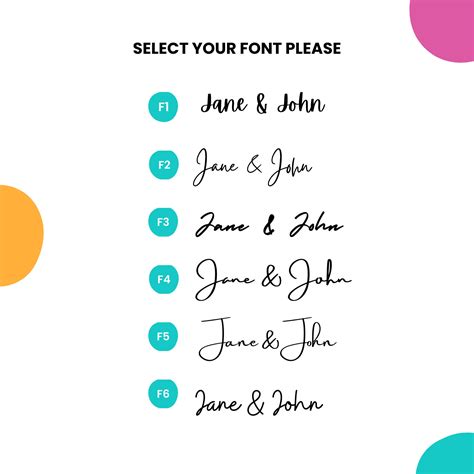 SELECT YOUR FONT PLEASE
F1 Jane & John
F2 Jane & John
F3 Jane & John
F4 Jane & John
F5 Jane & John
F6 Jane & John